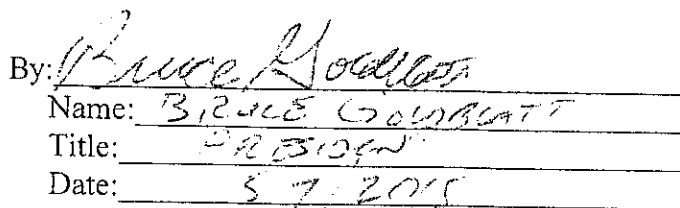 By: Bruce Goldblatt
Name: BRUCE GOLDBLATT
Title: PRESIDEN
Date: 5 7 2015